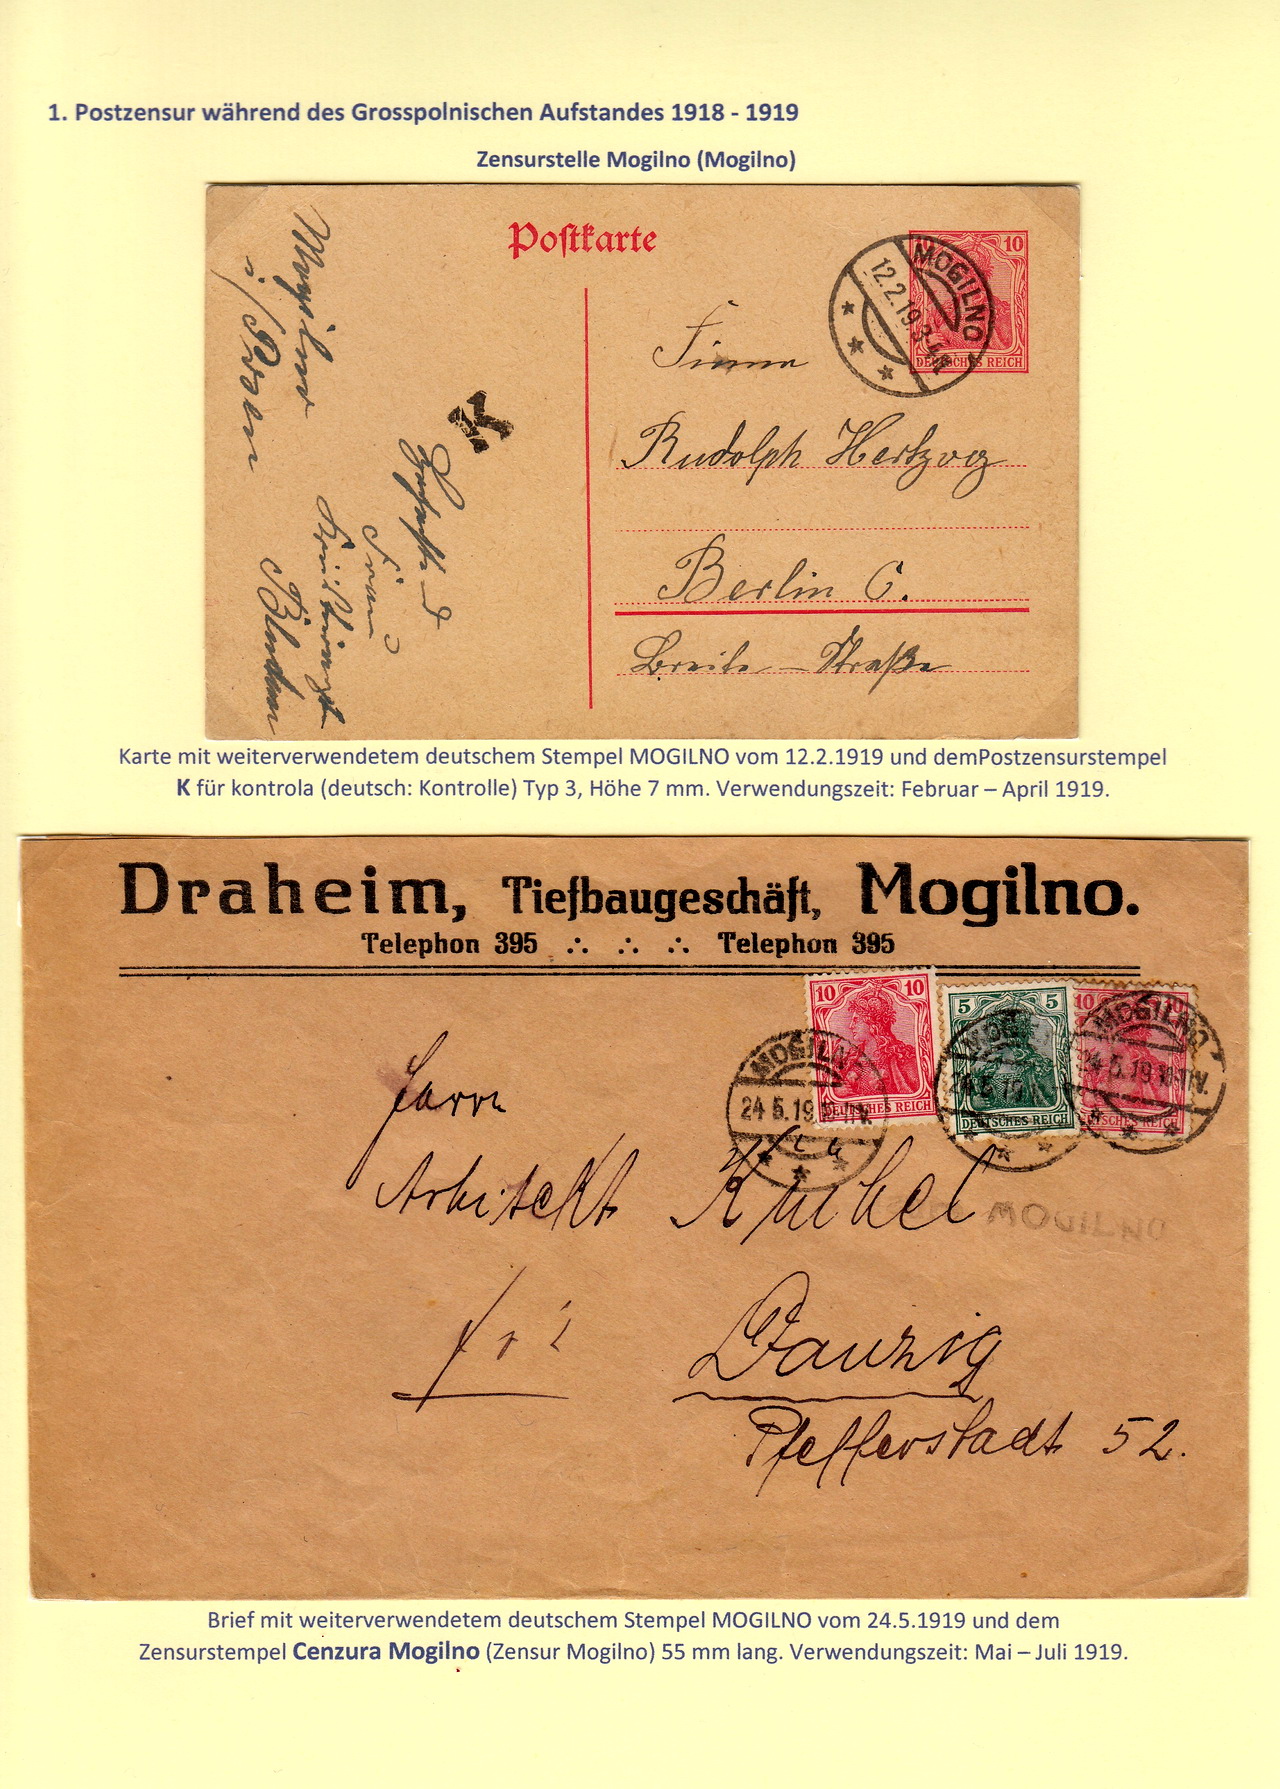 1. Postzensur während des Grosspolnischen Aufstandes 1918 - 1919
Zensurstelle Mogilno (Mogilno)
Postkarte
10
MOGILNO
12.2.19.3-4N.
DEUTSCHES REICH
Firma
Rudolph Hertzog
Berlin C.
Breite-Straße
K
Mogilno
i/Posen
Frau
Karte mit weiterverwendetem deutschem Stempel MOGILNO vom 12.2.1919 und demPostzensurstempel
K für kontrola (deutsch: Kontrolle) Typ 3, Höhe 7 mm. Verwendungszeit: Februar – April 1919.
Draheim, Tiefbaugeschäft, Mogilno.
Telephon 395 ∴ ∴ ∴ Telephon 395
10 10
5 5
10 10
MOGILNO
24.5.19
DEUTSCHES REICH
MOGILNO
24.5.19
DEUTSCHES REICH
MOGILNO
24.5.19 10-11V.
DEUTSCHES REICH
Herrn
Architekt
MOGILNO
Danzig
Pfefferstadt 52.
Brief mit weiterverwendetem deutschem Stempel MOGILNO vom 24.5.1919 und dem
Zensurstempel Cenzura Mogilno (Zensur Mogilno) 55 mm lang. Verwendungszeit: Mai – Juli 1919.